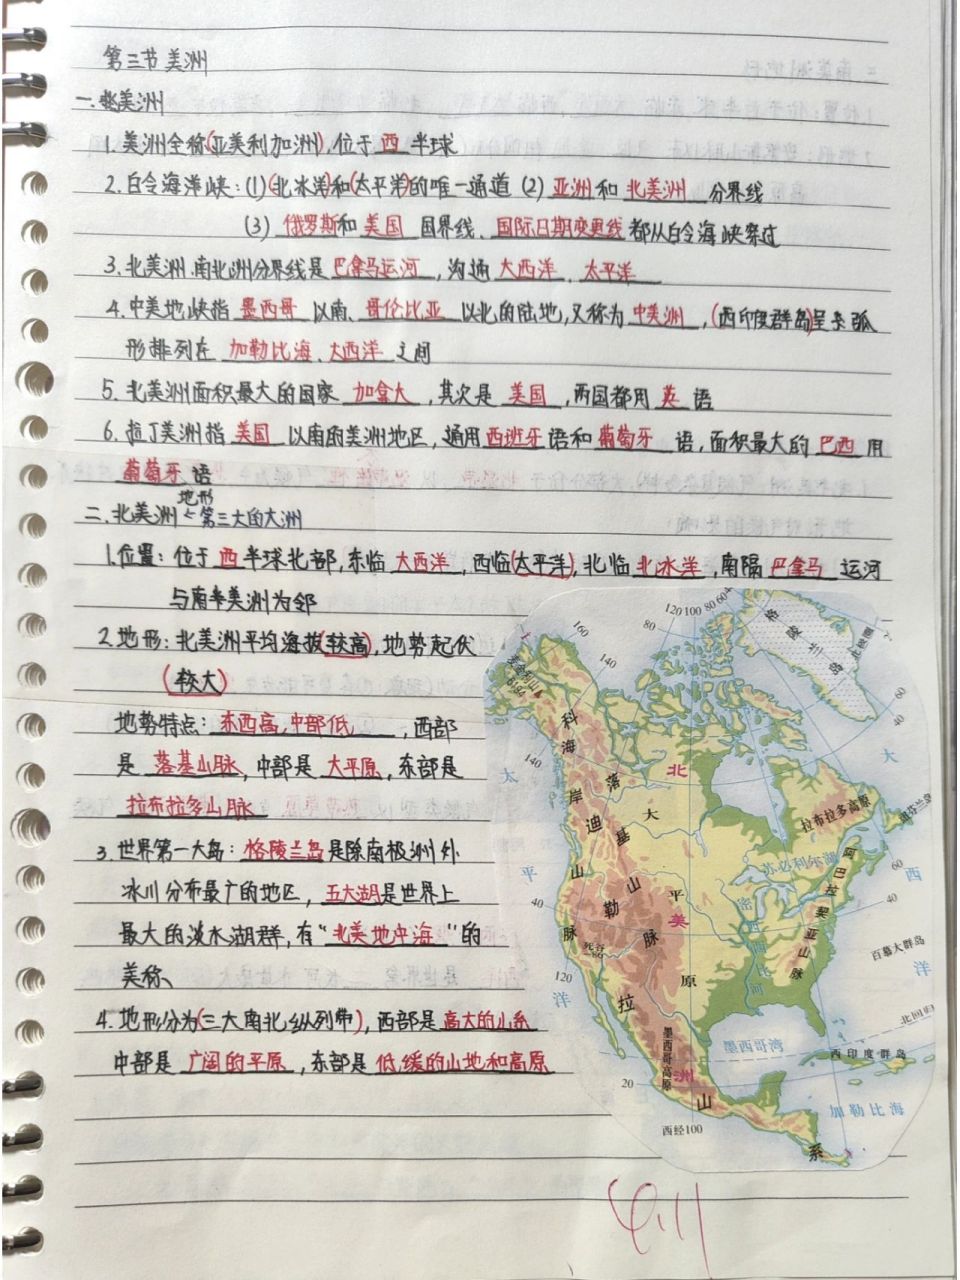 第三节 美洲
一.美洲
1.美洲全称(亚美利加洲),位于西半球
2.白令海洋峡:(1)(北冰洋)和(太平洋)的唯一通道 (2) 亚洲和北美洲 分界线
(3) 俄罗斯和美国 国界线、国际日期变更线都从白令海峡穿过
3.北美洲.南北洲分界线是巴拿马运河,沟通大西洋、太平洋
4.中美地峡指墨西哥以南、哥伦比亚以北的陆地,又称为中美洲,(西印度群岛)呈 弧
形排列在加勒比海、大西洋之间
5.北美洲面积最大的国家加拿大,其次是美国,两国都用英语
6.拉丁美洲指美国以南的美洲地区,通用西班牙语和葡萄牙语,面积最大的巴西用
葡萄牙语
地形
二.北美洲 ←第三大的大洲
1.位置:位于西半球北部,东临大西洋,西临(太平洋),北临北冰洋,南隔巴拿马运河
与南美洲为邻
2.地形:北美洲平均海拔(较高),地势起伏
(较大)
地势特点:东西高,中部低,西部
是落基山脉,中部是大平原,东部是
拉布拉多山脉
3.世界第一大岛:格陵兰岛是除南极洲外
冰川分布最广的地区,五大湖是世界上
最大的淡水湖群,有“北美地中海”的
美称、
4.地形分为(三大南北纵列带),西部是高大的山系
中部是广阔的平原,东部是低缓的山地和高原
160
140
120 100 80 60 40
80
格陵兰岛
北极圈
60
40
6194
科
海岸山脉
140
太
平
洋
落基山脉
迪勒拉山系
北
美
洲
大
平
原
拉布拉多高原
纽芬兰岛
苏必利尔湖
阿巴拉契亚山脉
密西西比河
60
40
大
西
洋
40
死谷
-86
120
百慕大群岛
北回归
墨西哥高原
墨西哥湾
西印度群岛
20
加勒比海
西经100